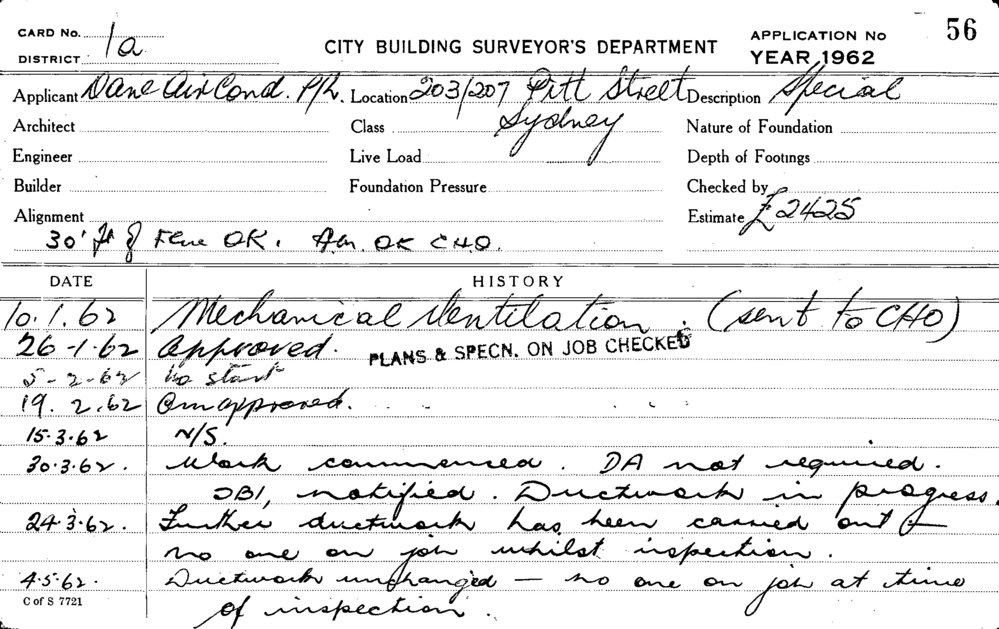 CARD No. 1a
DISTRICT
CITY BUILDING SURVEYOR'S DEPARTMENT
APPLICATION No 56
YEAR 1962
Applicant Dane Air Cond. P/L. Location 203/207 Pitt Street Description Special
Architect Class Sydney Nature of Foundation
Engineer Live Load Depth of Footings
Builder Foundation Pressure Checked by
Alignment Estimate £2425
30' of Flue OK. OK CHO.
DATE HISTORY
10.1.62 Mechanical Ventilation. (sent to CHO)
26-1-62 Approved. PLANS & SPECN. ON JOB CHECKED
5-2-62 No start
19.2.62 approved.
15.3.62 N/S.
30.3.62. Work commenced. DA not required.
DBI, notified. Ductwork in progress.
24.3.62. Further ductwork has been carried out –
no one on job whilst inspection.
4.5.62. Ductwork unchanged – no one on job at time
C of S 7721
of inspection.